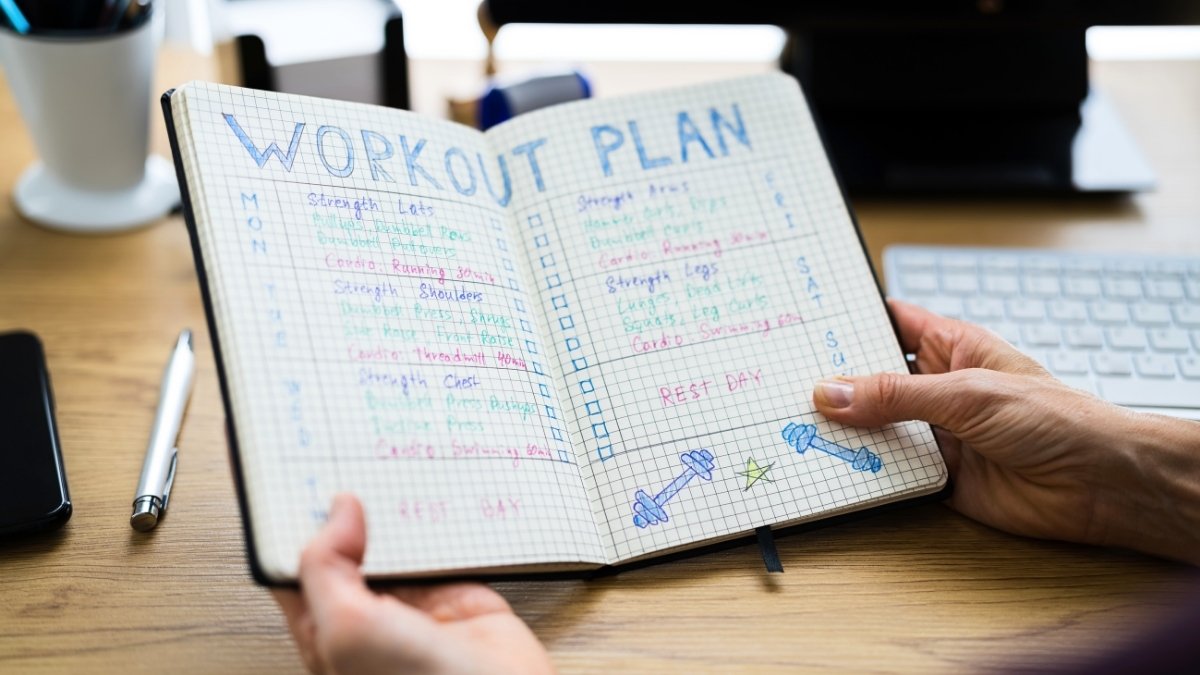 WORKOUT PLAN
MON
Strength Lats
Pullups Dumbbell Rows
Dumbbell Pullovers
Cardio: Running 30min
TUE
Strength Shoulders
Dumbbell Press, Shrugs
Side Raise Front Raise
Cardio: Threadmill 40min
WED
Strength Chest
Dumbbell Press Pushups
Incline Press
Cardio: Swimming 60min
REST DAY
FRI
Strength Arms
Hammer Curls, Dips
Dumbbell Curls
Cardio: Running 30min
SAT
Strength Legs
Lunges, Dead Lifts
Squats, Leg Curls
Cardio: Swimming 60m
SU
REST DAY